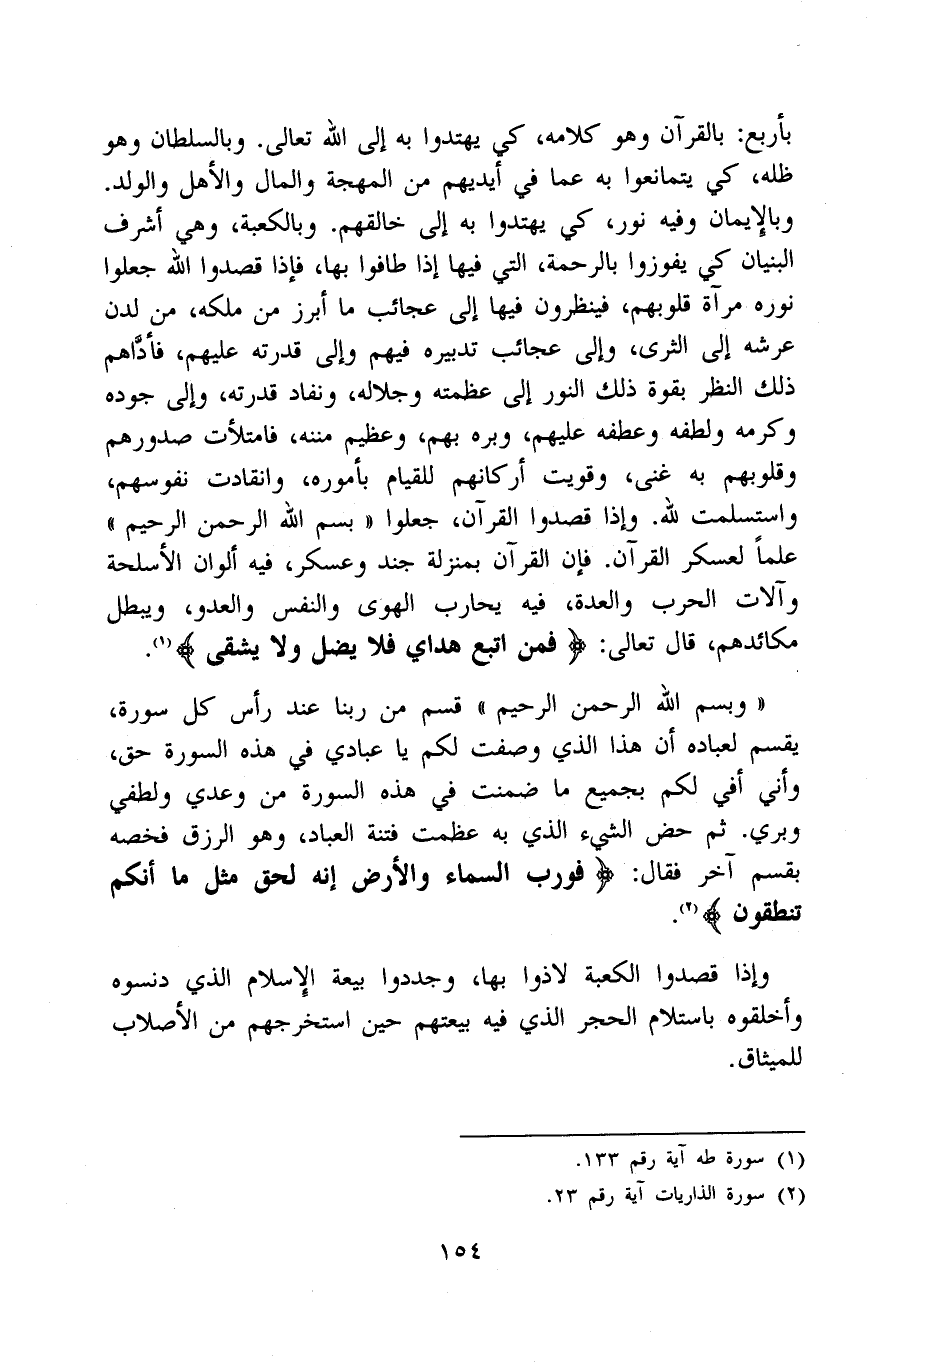 بأربع: بالقرآن وهو كلامه، كي يهتدوا به إلى الله تعالى. وبالسلطان وهو
ظله، كي يتمانعوا به عما في أيديهم من المهجة والمال والأهل والولد.
وبالإيمان وفيه نور، كي يهتدوا به إلى خالقهم. وبالكعبة، وهي أشرف
البنيان كي يفوزوا بالرحمة، التي فيها إذا طافوا بها، فإذا قصدوا الله جعلوا
نوره مرآة قلوبهم، فينظرون فيها إلى عجائب ما أبرز من ملكه، من لدن
عرشه إلى الثرى، وإلى عجائب تدبيره فيهم وإلى قدرته عليهم، فأدَّاهم
ذلك النظر بقوة ذلك النور إلى عظمته وجلاله، ونفاد قدرته، وإلى جوده
وكرمه ولطفه وعطفه عليهم، وبره بهم، وعظيم مننه، فامتلأت صدورهم
وقلوبهم به غنى، وقويت أركانهم للقيام بأموره، وانقادت نفوسهم،
واستسلمت لله. وإذا قصدوا القرآن، جعلوا « بسم الله الرحمن الرحيم »
علماً لعسكر القرآن. فإن القرآن بمنزلة جند وعسكر، فيه ألوان الأسلحة
وآلات الحرب والعدة، فيه يحارب الهوى والنفس والعدو، ويبطل
مكائدهم، قال تعالى: ﴿ فمن اتبع هداي فلا يضل ولا يشقى ﴾(١).
« وبسم الله الرحمن الرحيم » قسم من ربنا عند رأس كل سورة،
يقسم لعباده أن هذا الذي وصفت لكم يا عبادي في هذه السورة حق،
وأني أفي لكم بجميع ما ضمنت في هذه السورة من وعدي ولطفي
وبري. ثم حض الشيء الذي به عظمت فتنة العباد، وهو الرزق فخصه
بقسم آخر فقال: ﴿ فورب السماء والأرض إنه لحق مثل ما أنكم
تنطقون ﴾(٢).
وإذا قصدوا الكعبة لاذوا بها، وجددوا بيعة الإسلام الذي دنسوه
وأخلقوه باستلام الحجر الذي فيه بيعتهم حين استخرجهم من الأصلاب
للميثاق.
(١) سورة طه آية رقم ١٣٣.
(٢) سورة الذاريات آية رقم ٢٣.
١٥٤